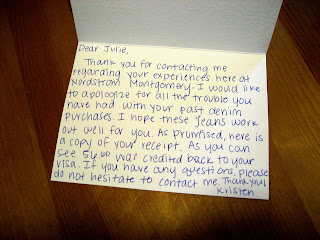 Dear Julie,
Thank you for contacting me
regarding your experiences here at
Nordstrom Montgomery. I would like
to apologize for all the trouble you
have had with your past denim
purchases. I hope these jeans work
out well for you. As promised, here is
a copy of your receipt. As you can
see 56.60 was credited back to your
visa. If you have any questions, please
do not hesitate to contact me. Thank you!
Kristen